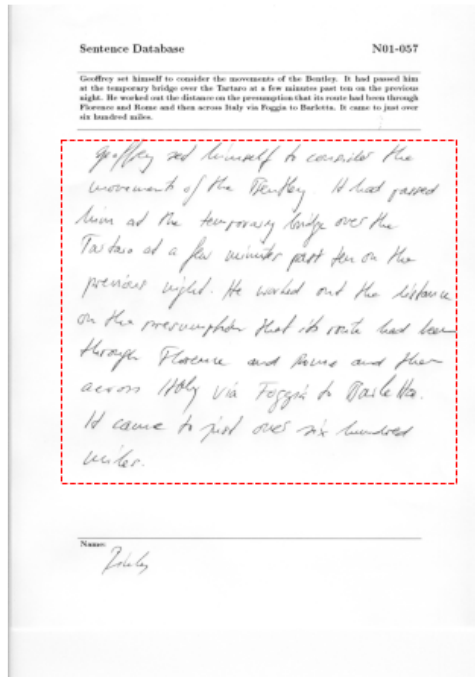 Sentence Database N01-057
Geoffrey set himself to consider the movements of the Bentley. It had passed him
at the temporary bridge over the Tartaro at a few minutes past ten on the previous
night. He worked out the distance on the presumption that its route had been through
Florence and Rome and then across Italy via Foggia to Barletta. It came to just over
six hundred miles.
Geoffrey set himself to consider the
movements of the Bentley. It had passed
him at the temporary bridge over the
Tartaro at a few minutes past ten on the
previous night. He worked out the distance
on the presumption that its route had been
through Florence and Rome and then
across Italy via Foggia to Barletta.
It came to just over six hundred
miles.
Name: